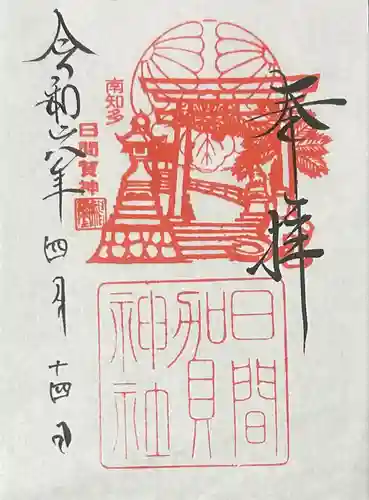 奉拝
南知多
日間賀神社
日間賀神社
令和六年四月十四日